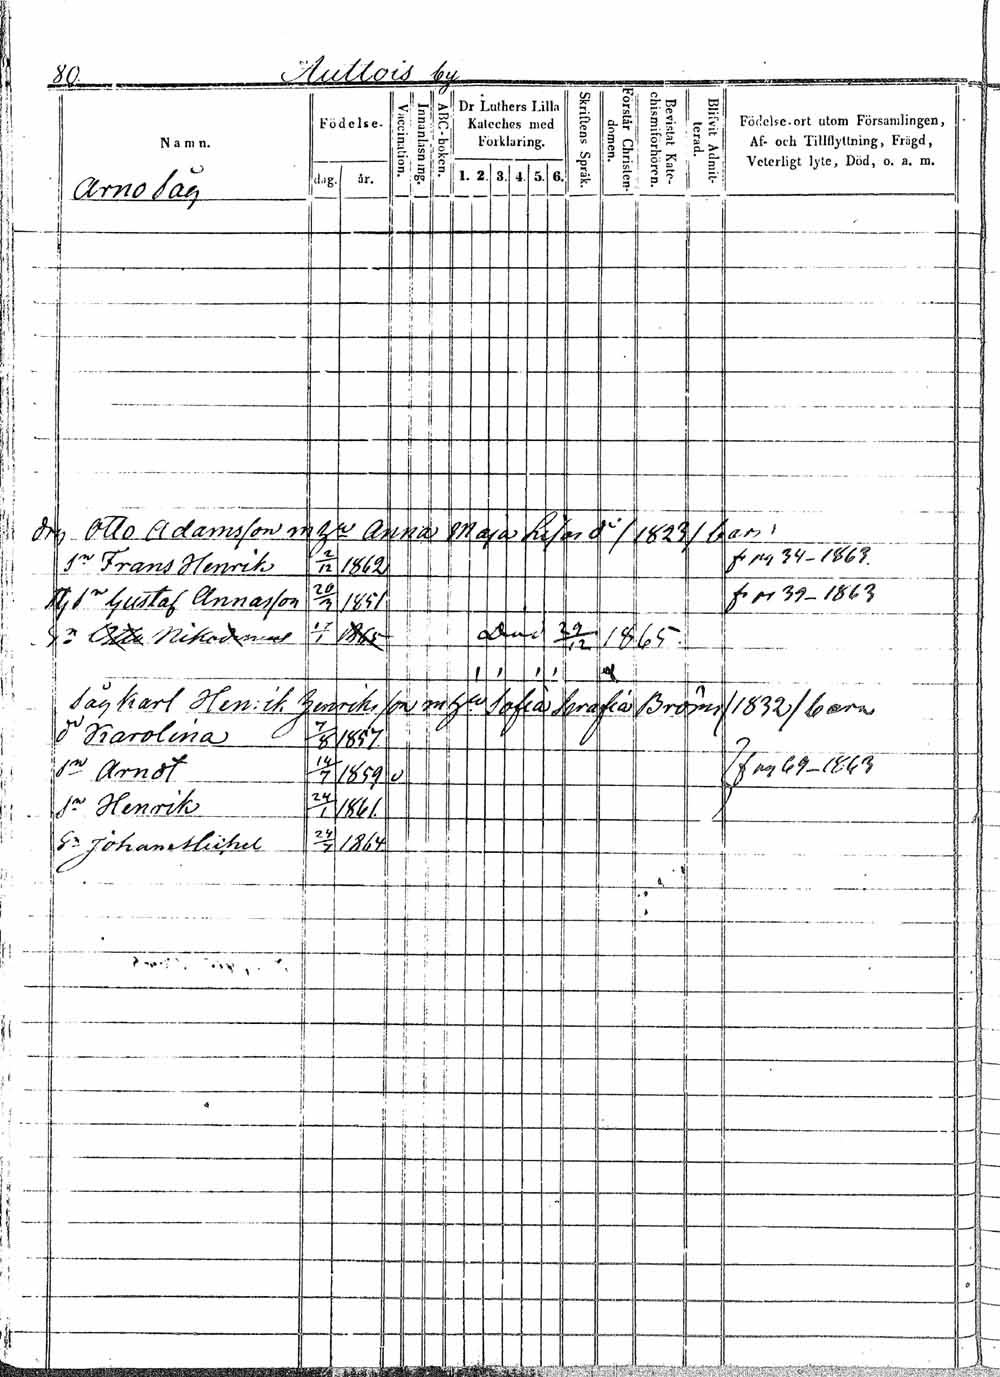 80. Auttois by
Namn.
Födelse-
dag. år.
Vaccination.
Innanläsning.
ABC-boken.
Dr Luthers Lilla
Kateches med
Förklaring.
1. 2. 3. 4. 5. 6.
Skriftens Språk.
Förstår Christen-
domen.
Bevistat Kate-
chismiförhören.
Blifvit Admit-
terad.
Födelse-ort utom Församlingen,
Af- och Tillflyttning, Frägd,
Veterligt lyte, Död, o. a. m.
Arno Såg
Otto Adamsson m Anna Maja /1823/ barn
Sn Frans Henrik 2/12 1862 fr pag 34-1863.
Sn Gustaf Annasson 1851 39-1863
Sn Otto Nikodemus 17/1 1865 29/12 1865.
Såg Karl Henrik Henriksson m Sofia Serafia /1832/ barn
dr Karolina 7/8 1857
Sn Arndt 14/7 1859 v fr pag 69-1863
Sn Henrik 24/1 1861.
Sn Johan Michel 24/7 1864